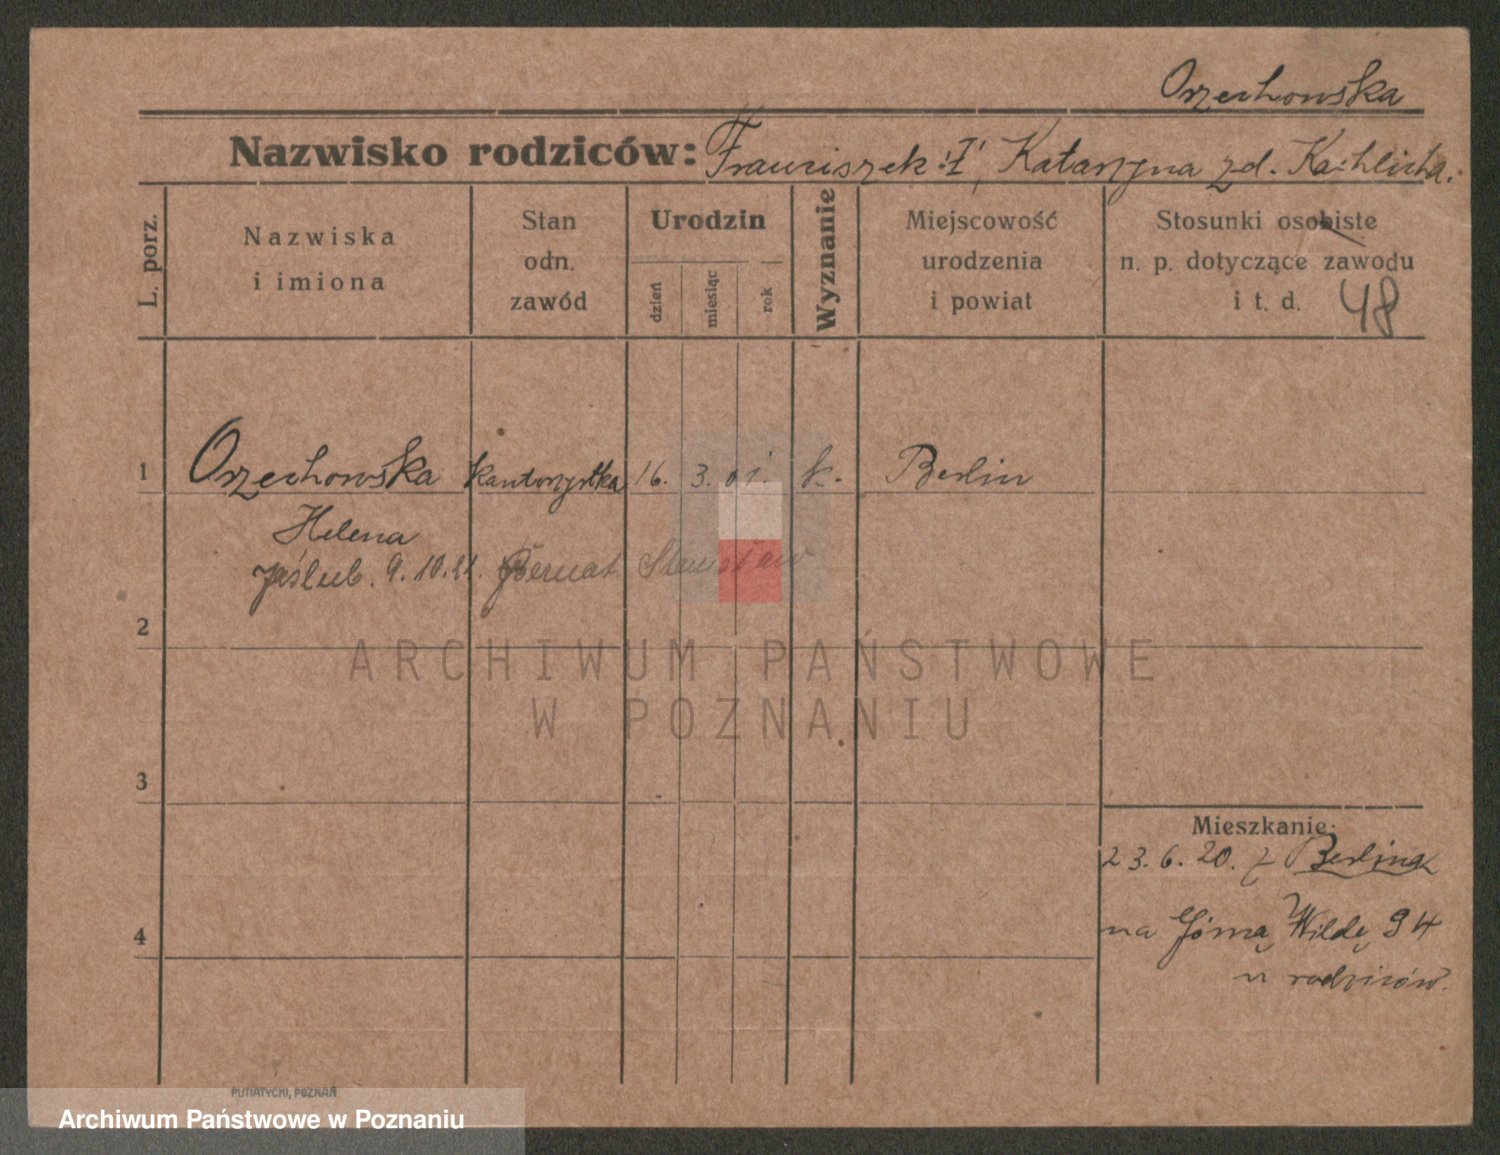 Orzechowska
Nazwisko rodziców: Franciszek 'I', Katarzyna zd. Kachlicka.
L. porz.
Nazwiska
i imiona
Stan
odn.
zawód
Urodzin
dzień
miesiąc
rok
Wyznanie
Miejscowość
urodzenia
i powiat
Stosunki osobiste
n. p. dotyczące zawodu
i t. d. 48
1 Orzechowska kantorzystka 16. 3. 01. k. Berlin
Helena
zaślub. 9.10.21. Biernat Stanisław
2
ARCHIWUM PAŃSTWOWE
W POZNANIU
3
Mieszkanie:
23.6.20. z Berlina
4
na Górną Wildę 94
u rodziców.
PUTIATYCKI, POZNAŃ
Archiwum Państwowe w Poznaniu